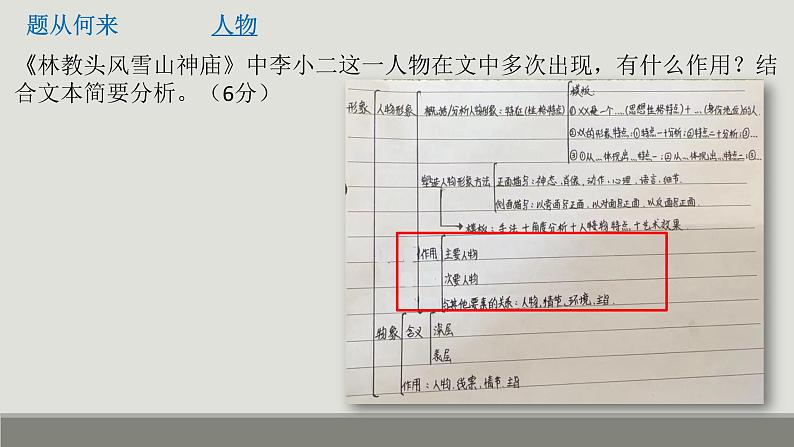 题从何来 人物
《林教头风雪山神庙》中李小二这一人物在文中多次出现，有什么作用？结
合文本简要分析。（6分）
模板：
形象 人物形象 概括/分析人物形象：特征(性格特点) ①XX是一个…(思想性格特点)+…(身份地位)的人.
②XX的形象特点：①特点一+分析；②特点二+分析；③…
③①从…体现出…特点一；②从…体现出…特点二；③…
塑造人物形象方法 正面描写：神态、肖像、动作、心理、语言、细节.
侧面描写：以旁面写正面、以对面写正面、以反面写正面.
模板：手法+角度分析+人物特点+艺术效果.
作用 主要人物
次要人物
与其他要素的关系：人物、情节、环境、主旨.
物象 含义 深层
表层
作用：人物、线索、情节、主旨